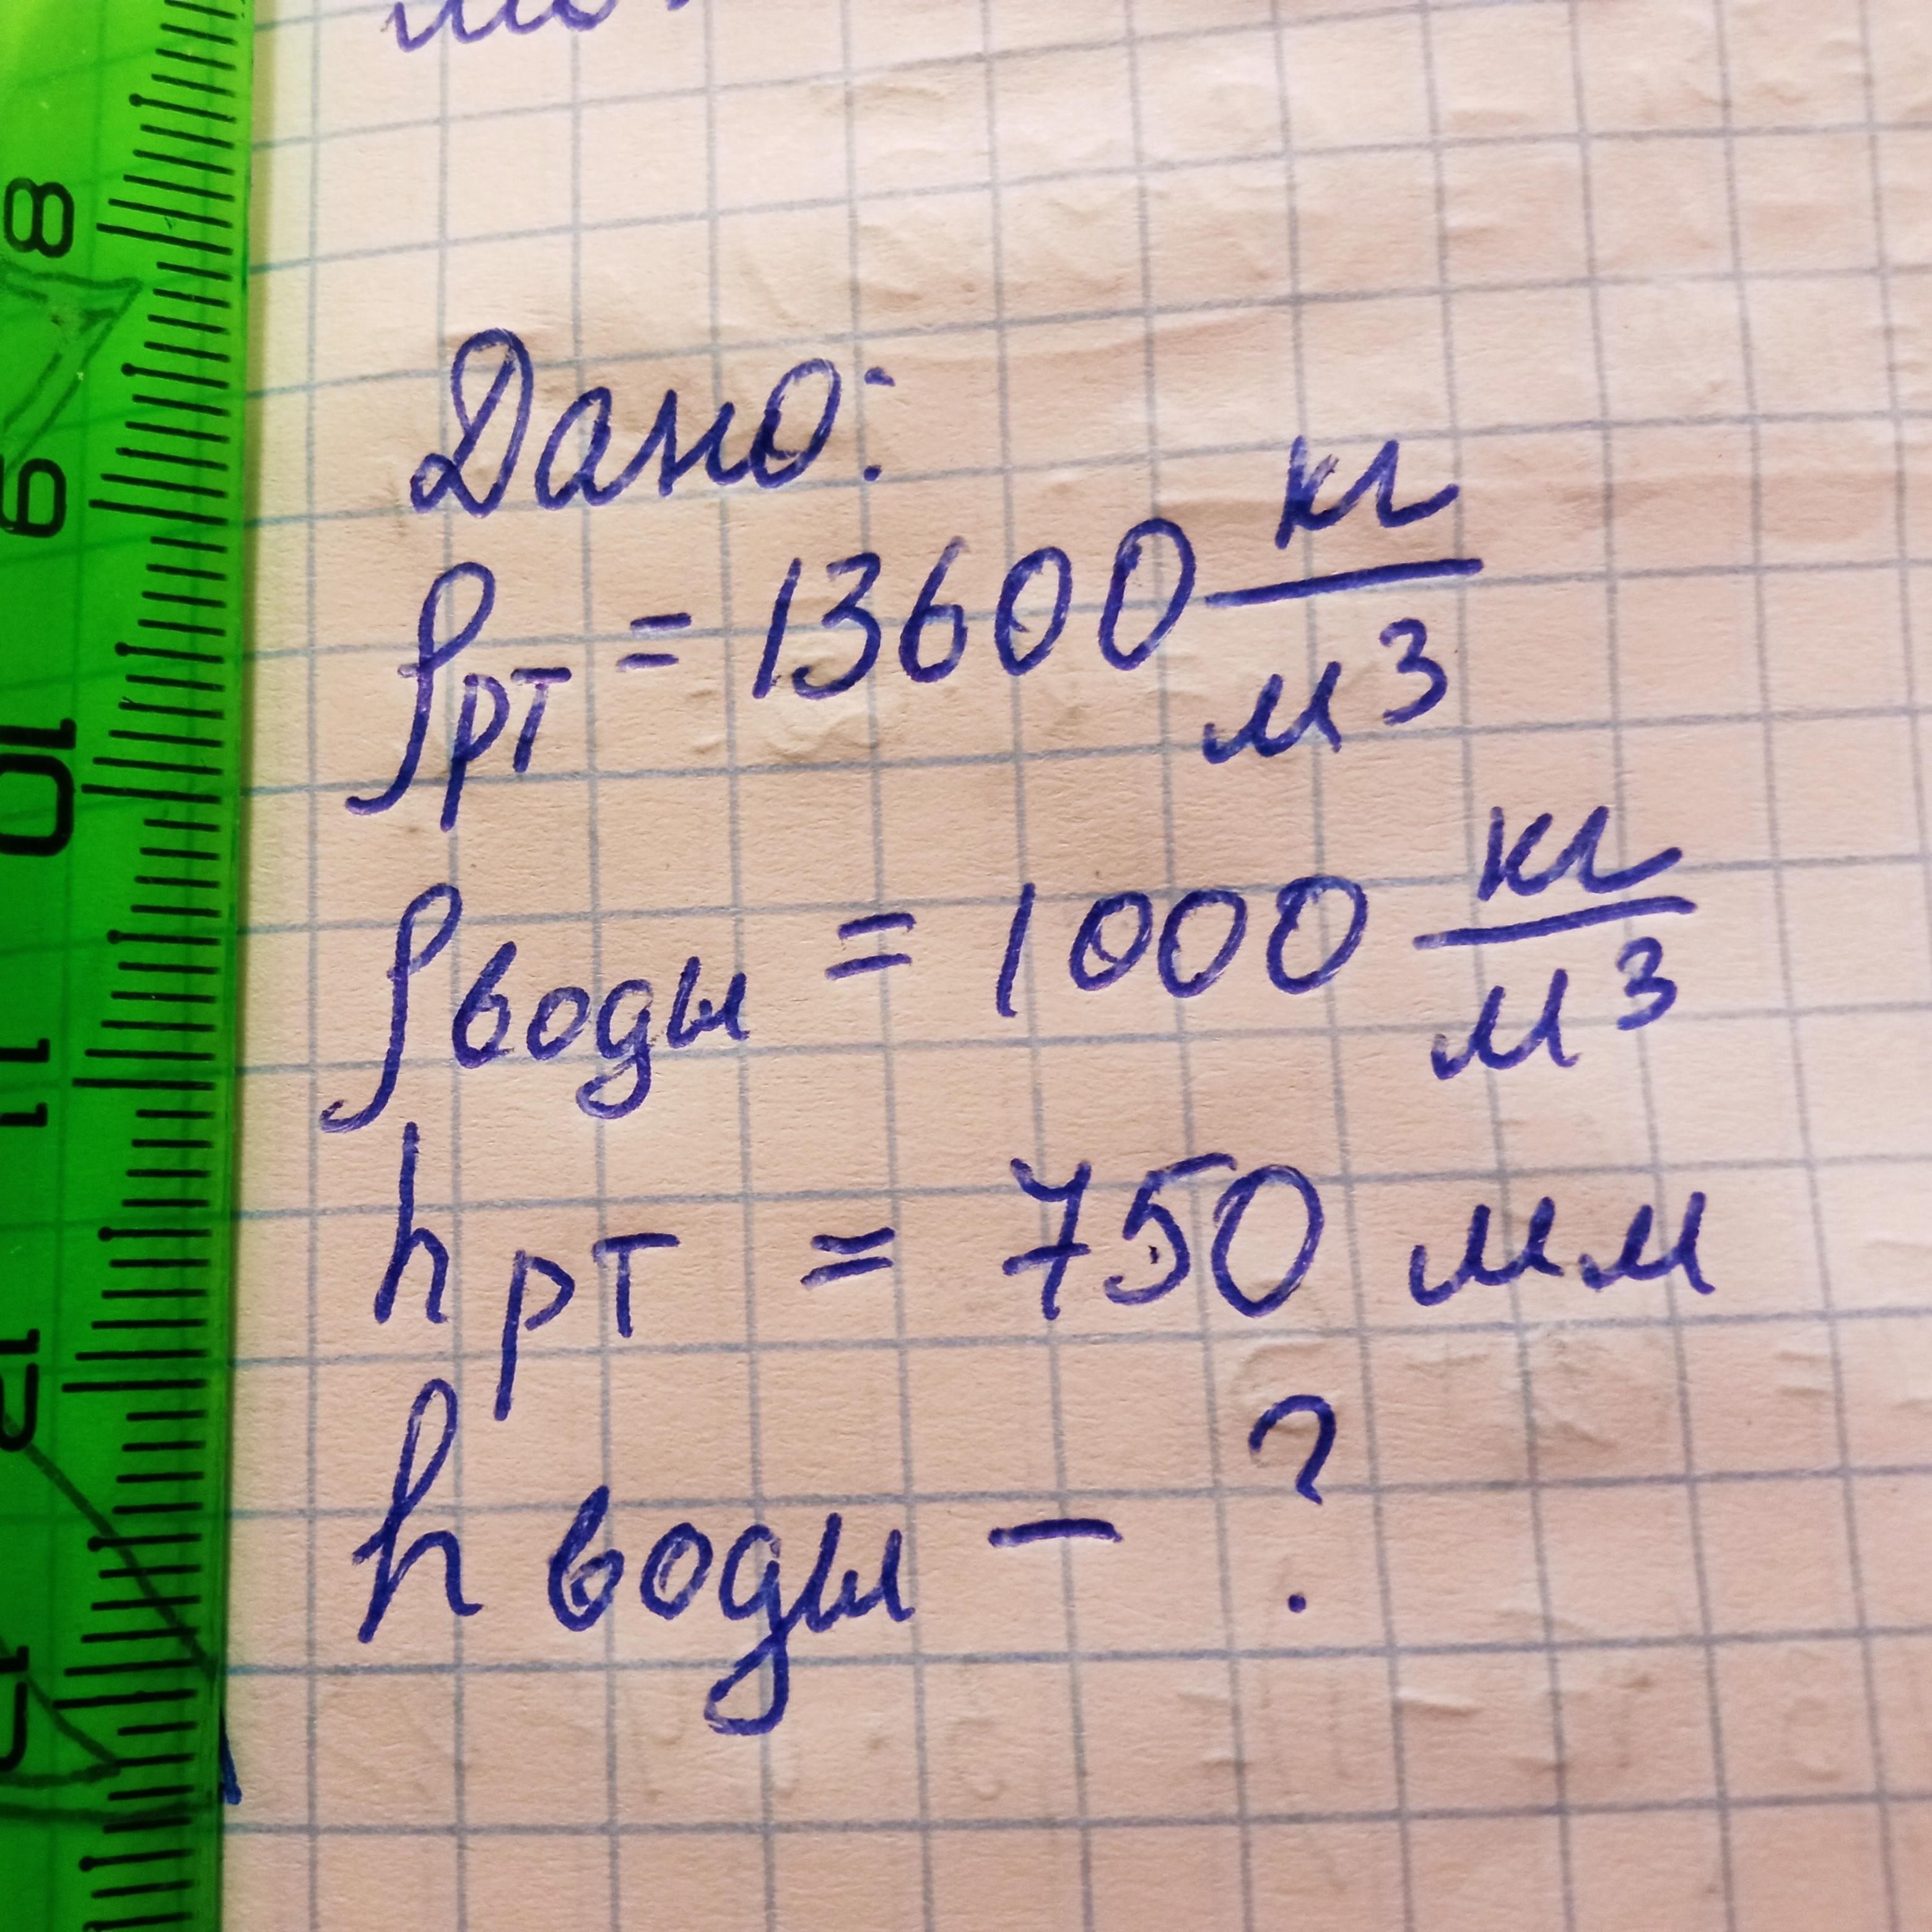 Дано:
ρрт = 13600 кг/м³
ρводы = 1000 кг/м³
hрт = 750 мм
hводы – ?
8
9
10
11
12
13